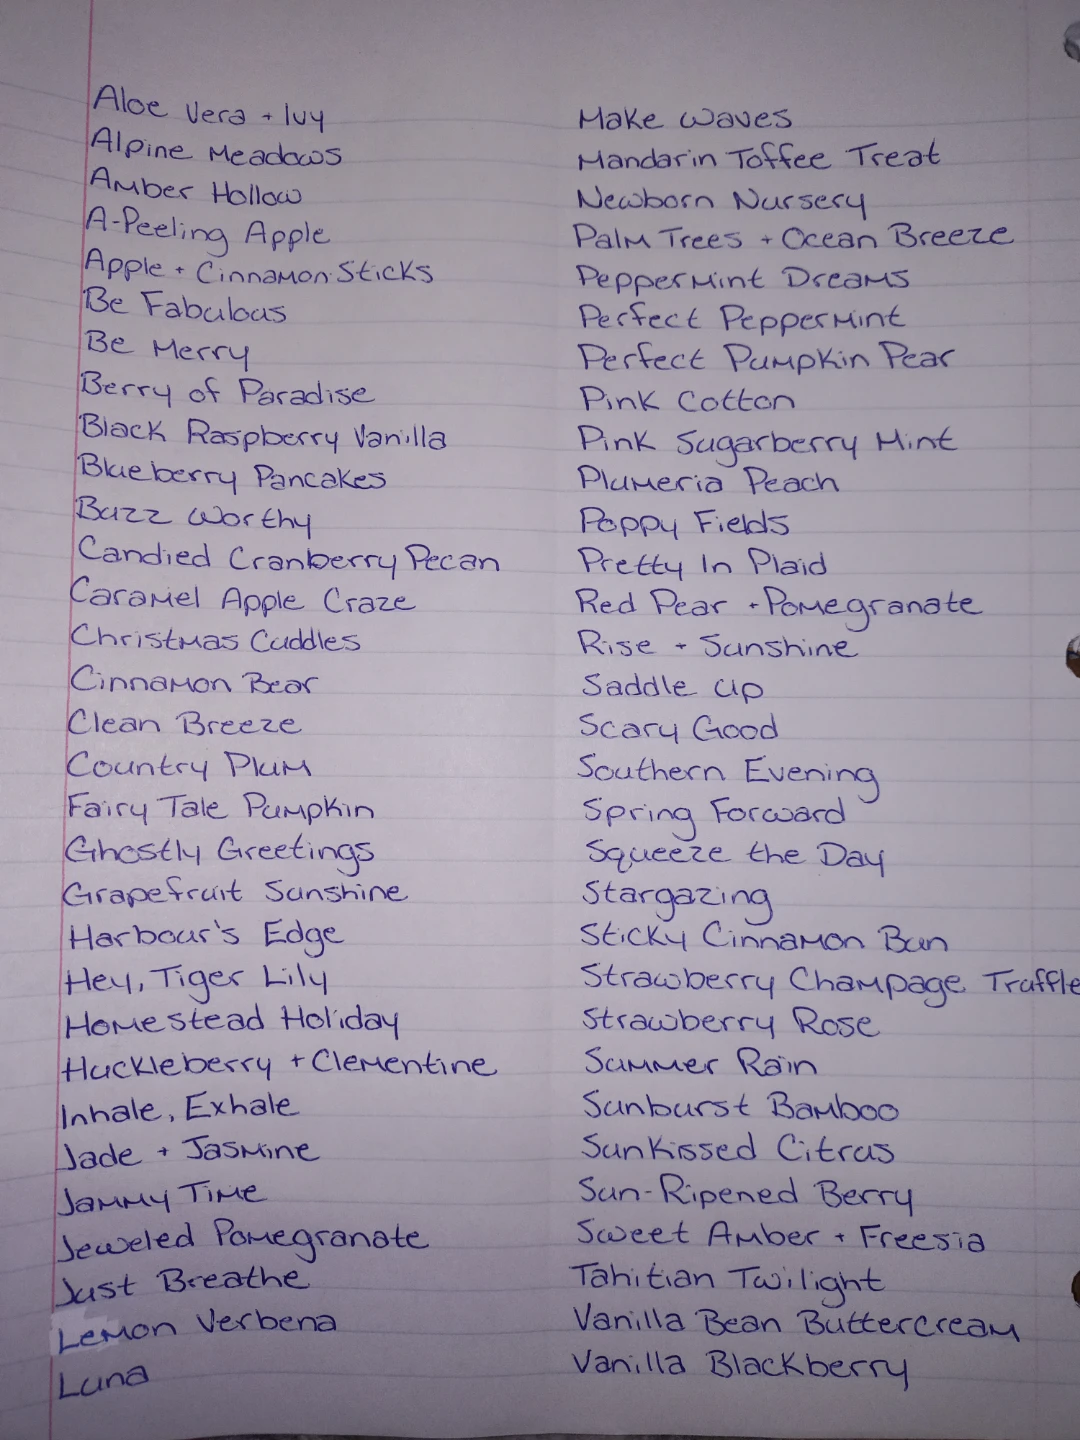 Aloe Vera + Ivy
Alpine Meadows
Amber Hollow
A-Peeling Apple
Apple + Cinnamon Sticks
Be Fabulous
Be Merry
Berry of Paradise
Black Raspberry Vanilla
Blueberry Pancakes
Buzz Worthy
Candied Cranberry Pecan
Caramel Apple Craze
Christmas Cuddles
Cinnamon Bear
Clean Breeze
Country Plum
Fairy Tale Pumpkin
Ghostly Greetings
Grapefruit Sunshine
Harbour's Edge
Hey, Tiger Lily
Homestead Holiday
Huckleberry + Clementine
Inhale, Exhale
Jade + Jasmine
Jammy Time
Jeweled Pomegranate
Just Breathe
Lemon Verbena
Luna
Make Waves
Mandarin Toffee Treat
Newborn Nursery
Palm Trees + Ocean Breeze
Peppermint Dreams
Perfect Peppermint
Perfect Pumpkin Pear
Pink Cotton
Pink Sugarberry Mint
Plumeria Peach
Poppy Fields
Pretty In Plaid
Red Pear + Pomegranate
Rise + Sunshine
Saddle Up
Scary Good
Southern Evening
Spring Forward
Squeeze the Day
Stargazing
Sticky Cinnamon Bun
Strawberry Champage Truffle
Strawberry Rose
Summer Rain
Sunburst Bamboo
Sunkissed Citrus
Sun-Ripened Berry
Sweet Amber + Freesia
Tahitian Twilight
Vanilla Bean Buttercream
Vanilla Blackberry